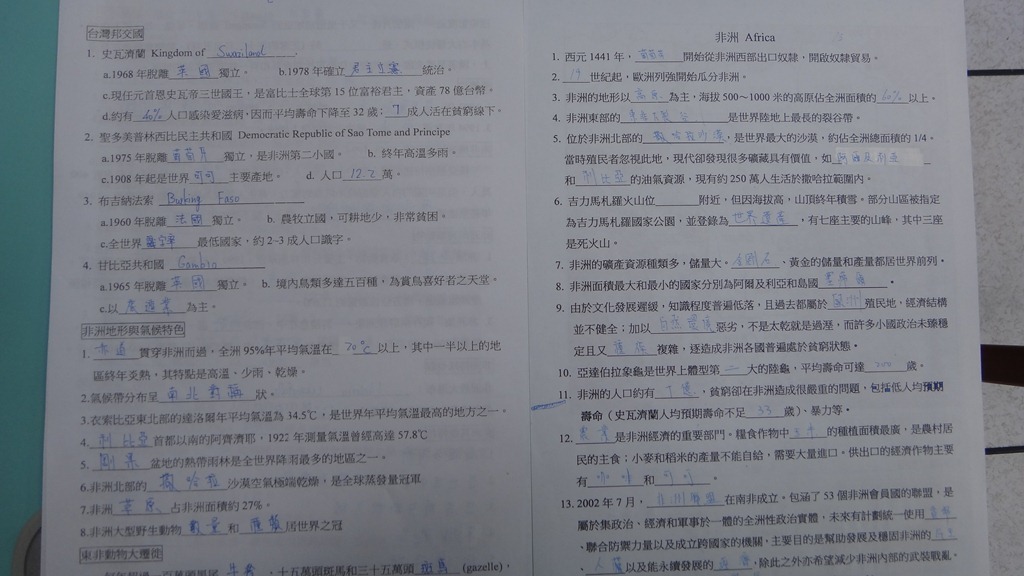 台灣邦交國
1. 史瓦濟蘭 Kingdom of Swaziland.
a.1968年脫離 英國 獨立。 b.1978年確立 君主立憲 統治。
c.現任元首恩史瓦帝三世國王，是富比士全球第15位富裕君主，資產78億台幣。
d.約有 40% 人口感染愛滋病,因而平均壽命下降至32歲; 7 成人活在貧窮線下。
2. 聖多美普林西比民主共和國 Democratic Republic of Sao Tome and Principe
a.1975年脫離 葡萄牙 獨立，是非洲第二小國。 b. 終年高溫多雨。
c.1908年起是世界 可可 主要產地。 d. 人口 12.2 萬。
3. 布吉納法索 Burking Faso
a.1960年脫離 法國 獨立。 b. 農牧立國，可耕地少，非常貧困。
c.全世界 識字率 最低國家，約2~3成人口識字。
4. 甘比亞共和國 Gambia
a.1965年脫離 英國 獨立。 b. 境內鳥類多達五百種，為賞鳥喜好者之天堂。
c.以 農漁業 為主。
非洲地形與氣候特色
1. 赤道 貫穿非洲而過，全洲95%年平均氣溫在 20℃ 以上，其中一半以上的地
區終年炎熱，其特點是高溫、少雨、乾燥。
2.氣候帶分布呈 南北對稱 狀。
3.衣索比亞東北部的達洛爾年平均氣溫為34.5℃，是世界年平均氣溫最高的地方之一。
4. 利比亞 首都以南的阿濟濟耶，1922年測量氣溫曾經高達57.8℃
5. 剛果 盆地的熱帶雨林是全世界降雨最多的地區之一。
6.非洲北部的 撒哈拉 沙漠空氣極端乾燥，是全球蒸發量冠軍
7.非洲 草原 占非洲面積約27%。
8.非洲大型野生動物 數量 和 種類 居世界之冠
東非動物大遷徙
牛羚 、十五萬頭斑馬和三十五萬頭 斑馬 (gazelle)，
非洲 Africa
1. 西元1441年， 葡萄牙 開始從非洲西部出口奴隸，開啟奴隸貿易。
2. 19 世紀起，歐洲列強開始瓜分非洲。
3. 非洲的地形以 高原 為主，海拔500~1000米的高原佔全洲面積的 60% 以上。
4. 非洲東部的 是世界陸地上最長的裂谷帶。
5. 位於非洲北部的 撒哈拉沙漠 ，是世界最大的沙漠，約佔全洲總面積的1/4。
當時殖民者忽視此地，現代卻發現很多礦藏具有價值，如 阿爾及利亞
和 利比亞 的油氣資源，現有約250萬人生活於撒哈拉範圍內。
6. 吉力馬札羅火山位 附近，但因海拔高，山頂終年積雪。部分山區被指定
為吉力馬札羅國家公園，並登錄為 世界遺產 ，有七座主要的山峰，其中三座
是死火山。
7. 非洲的礦產資源種類多，儲量大。 金剛石 、黃金的儲量和產量都居世界前列。
8. 非洲面積最大和最小的國家分別為阿爾及利亞和島國 塞席爾 。
9. 由於文化發展遲緩，知識程度普遍低落，且過去都屬於 歐洲 殖民地，經濟結構
並不健全；加以 自然環境 惡劣，不是太乾就是過溼，而許多小國政治未臻穩
定且又 種族 複雜，逐造成非洲各國普遍處於貧窮狀態。
10. 亞達伯拉象龜是世界上體型第 二 大的陸龜，平均壽命可達 200 歲。
11. 非洲的人口約有 十億 ，貧窮卻在非洲造成很嚴重的問題，包括低人均預期
壽命（史瓦濟蘭人均預期壽命不足 33 歲）、暴力等。
12. 農業 是非洲經濟的重要部門。糧食作物中 玉米 的種植面積最廣，是農村居
民的主食；小麥和稻米的產量不能自給，需要大量進口。供出口的經濟作物主要
有 咖啡 和 可可 。
13. 2002年7月， 非洲聯盟 在南非成立。包涵了53個非洲會員國的聯盟，是
屬於集政治、經濟和軍事於一體的全洲性政治實體，未來有計劃統一使用 貨幣
、聯合防禦力量以及成立跨國家的機關，主要目的是幫助發展及穩固非洲的 民主
、 人權 以及能永續發展的 經濟 ,除此之外亦希望減少非洲內部的武裝戰亂。